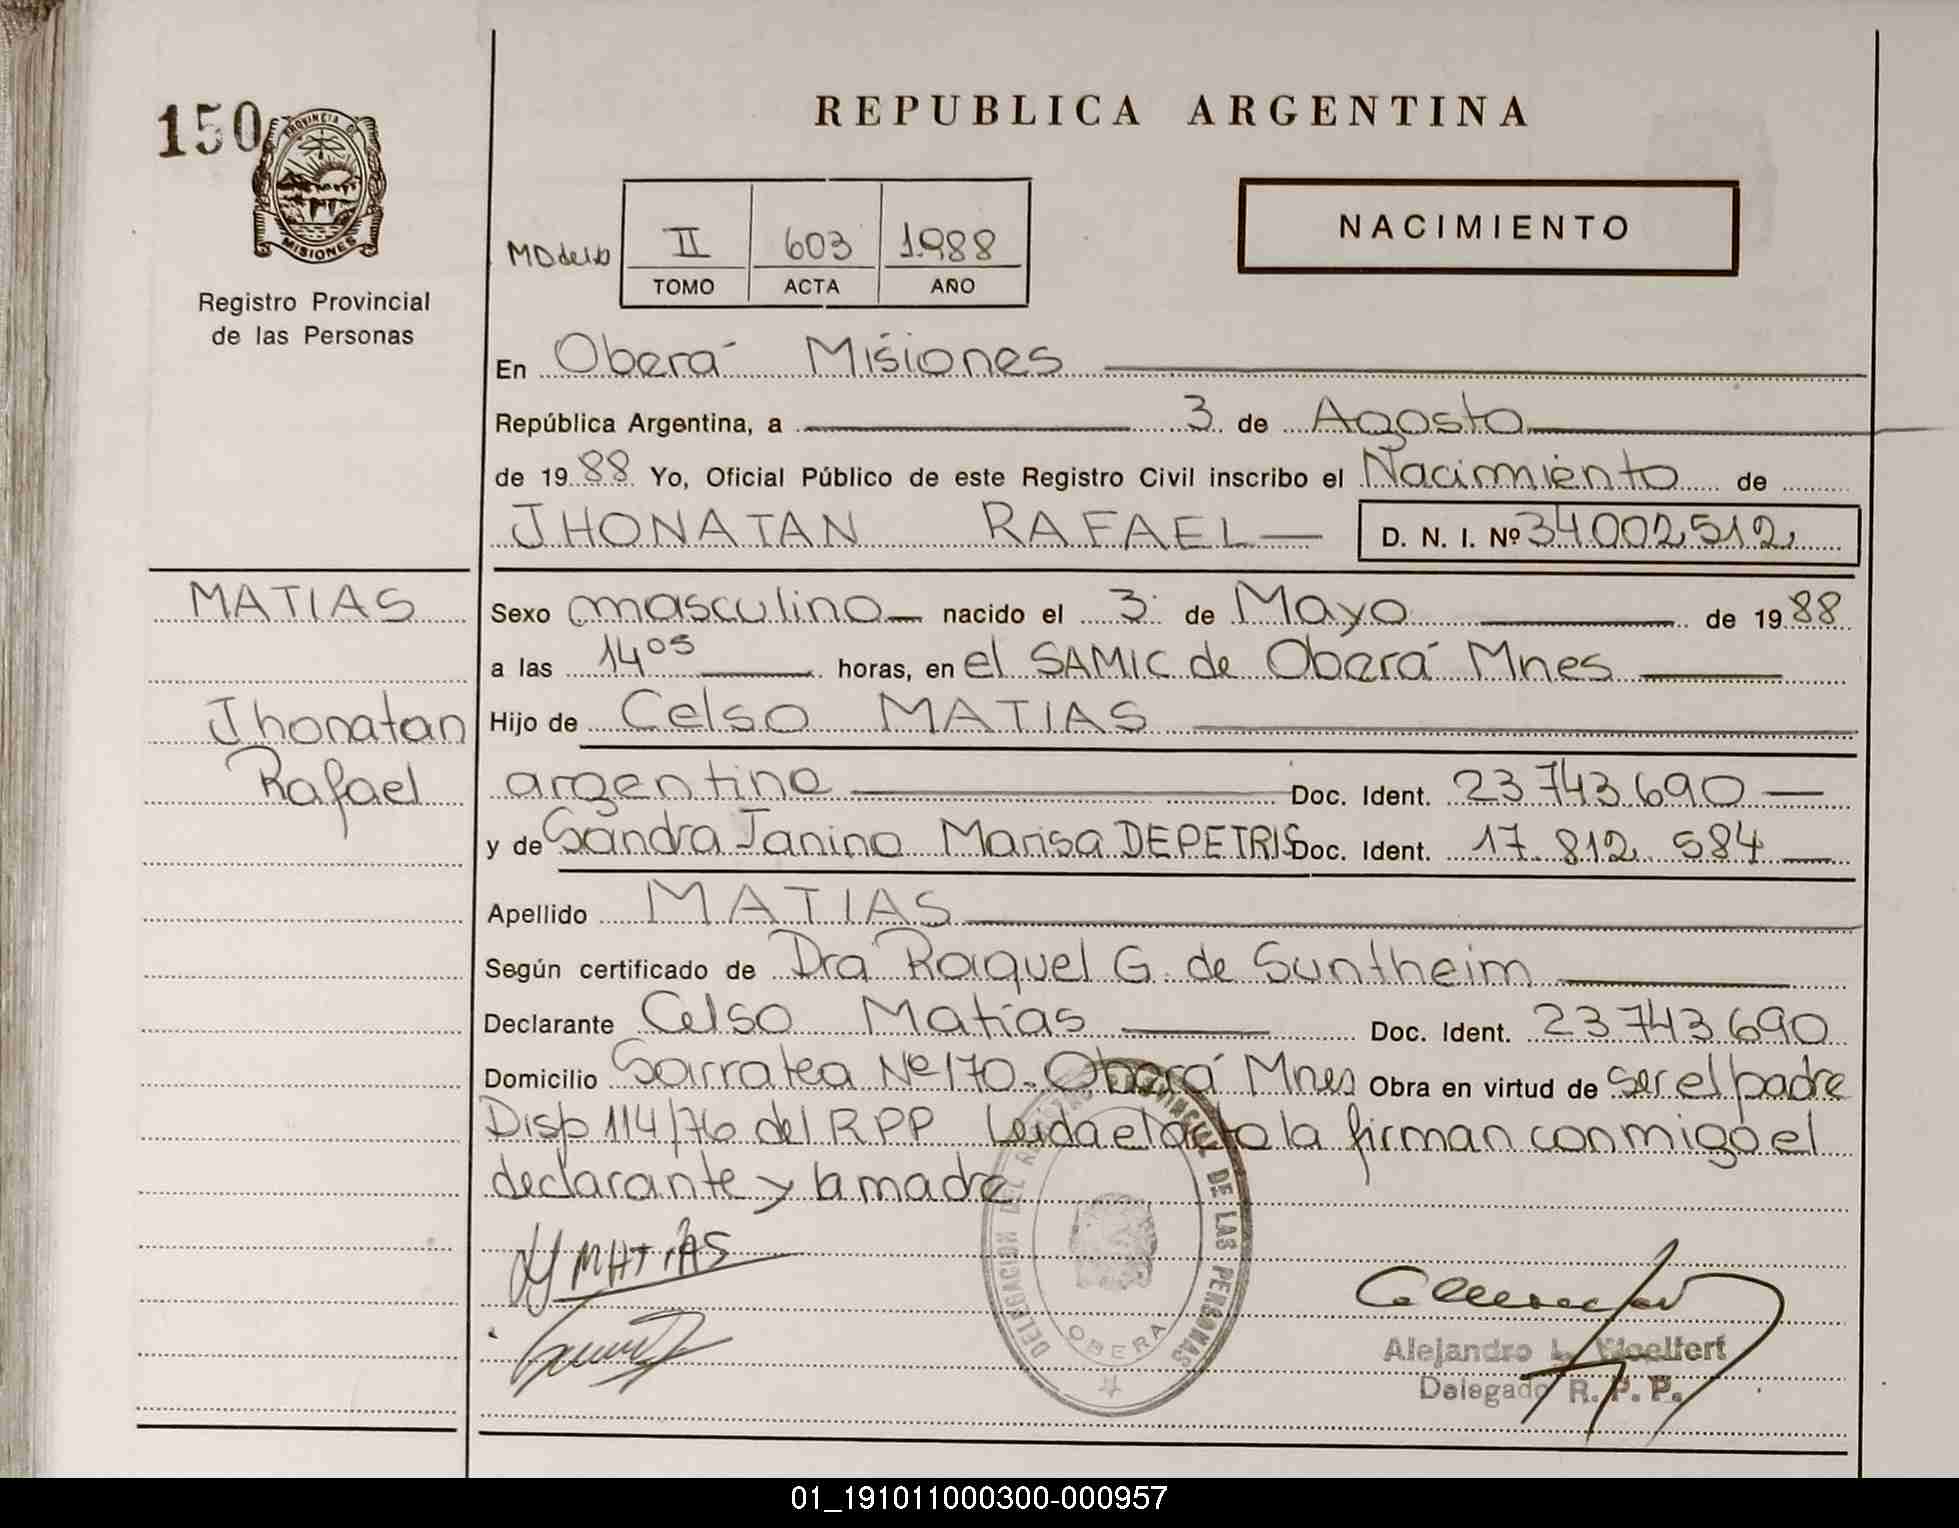 150
PROVINCIA DE
MISIONES
Registro Provincial
de las Personas
REPUBLICA ARGENTINA
NACIMIENTO
II 603 1988
TOMO ACTA AÑO
En Oberá Misiones
República Argentina, a 3 de Agosto
de 1988 Yo, Oficial Público de este Registro Civil inscribo el Nacimiento de
JHONATAN RAFAEL D. N. I. Nº 34002512
MATIAS
Jhonatan
Rafael
Sexo masculino nacido el 3 de Mayo de 1988
a las 14 05 horas, en el SAMIC de Oberá Mnes
Hijo de Celso MATIAS
argentino Doc. Ident. 23743690
y de Sandra Janina Marisa DEPETRIS Doc. Ident. 17.812.584
Apellido MATIAS
Según certificado de Dra Raquel G. de Suntheim
Declarante Celso Matías Doc. Ident. 23743690
Domicilio Sarratea Nº 170 - Oberá Mnes Obra en virtud de ser el padre
Disp 114/76 del RPP Leida el acta la firman conmigo el
declarante y la madre
MATIAS
DELEGACION DEL REGISTRO PROVINCIAL DE LAS PERSONAS
OBERA
Alejandro L. Woelfert
Delegado R. P. P.
01_191011000300-000957